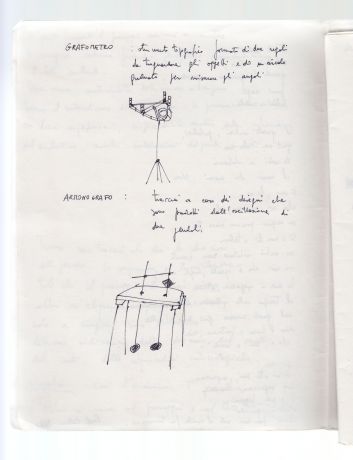 GRAFOMETRO : strumento topografico formato da due regoli
da traguardare gli oggetti e da un circolo
graduato per misurare gli angoli
ARMONOGRAFO : traccia a caso dei disegni che
sono prodotti dall'oscillazione di
due pendoli.